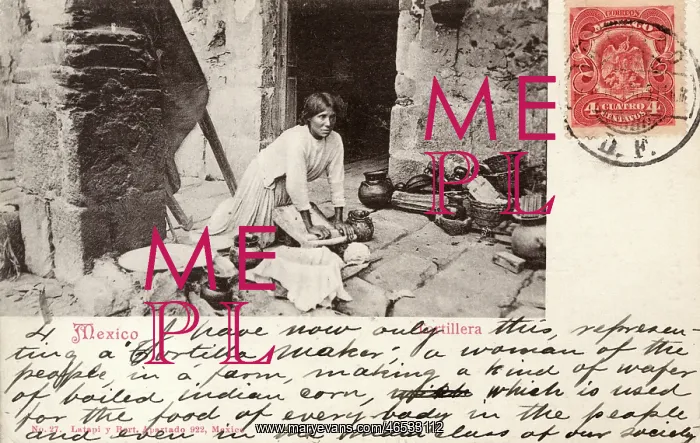 CORREOS
MEXICO
4 CUATRO 4
CENTAVOS
D. F.
ME
PL
ME
PL
Mexico Tortillera
4 I have now only this, represen-
ting a "Tortilla Maker", a woman of the
people, in a farm, making a kind of wafer
of boiled indian corn, which is used
for the food of every body in the people
No. 27. Latapi y Bert, Apartado 922, Mexico
and even class of our society
www.maryevans.com/46593112